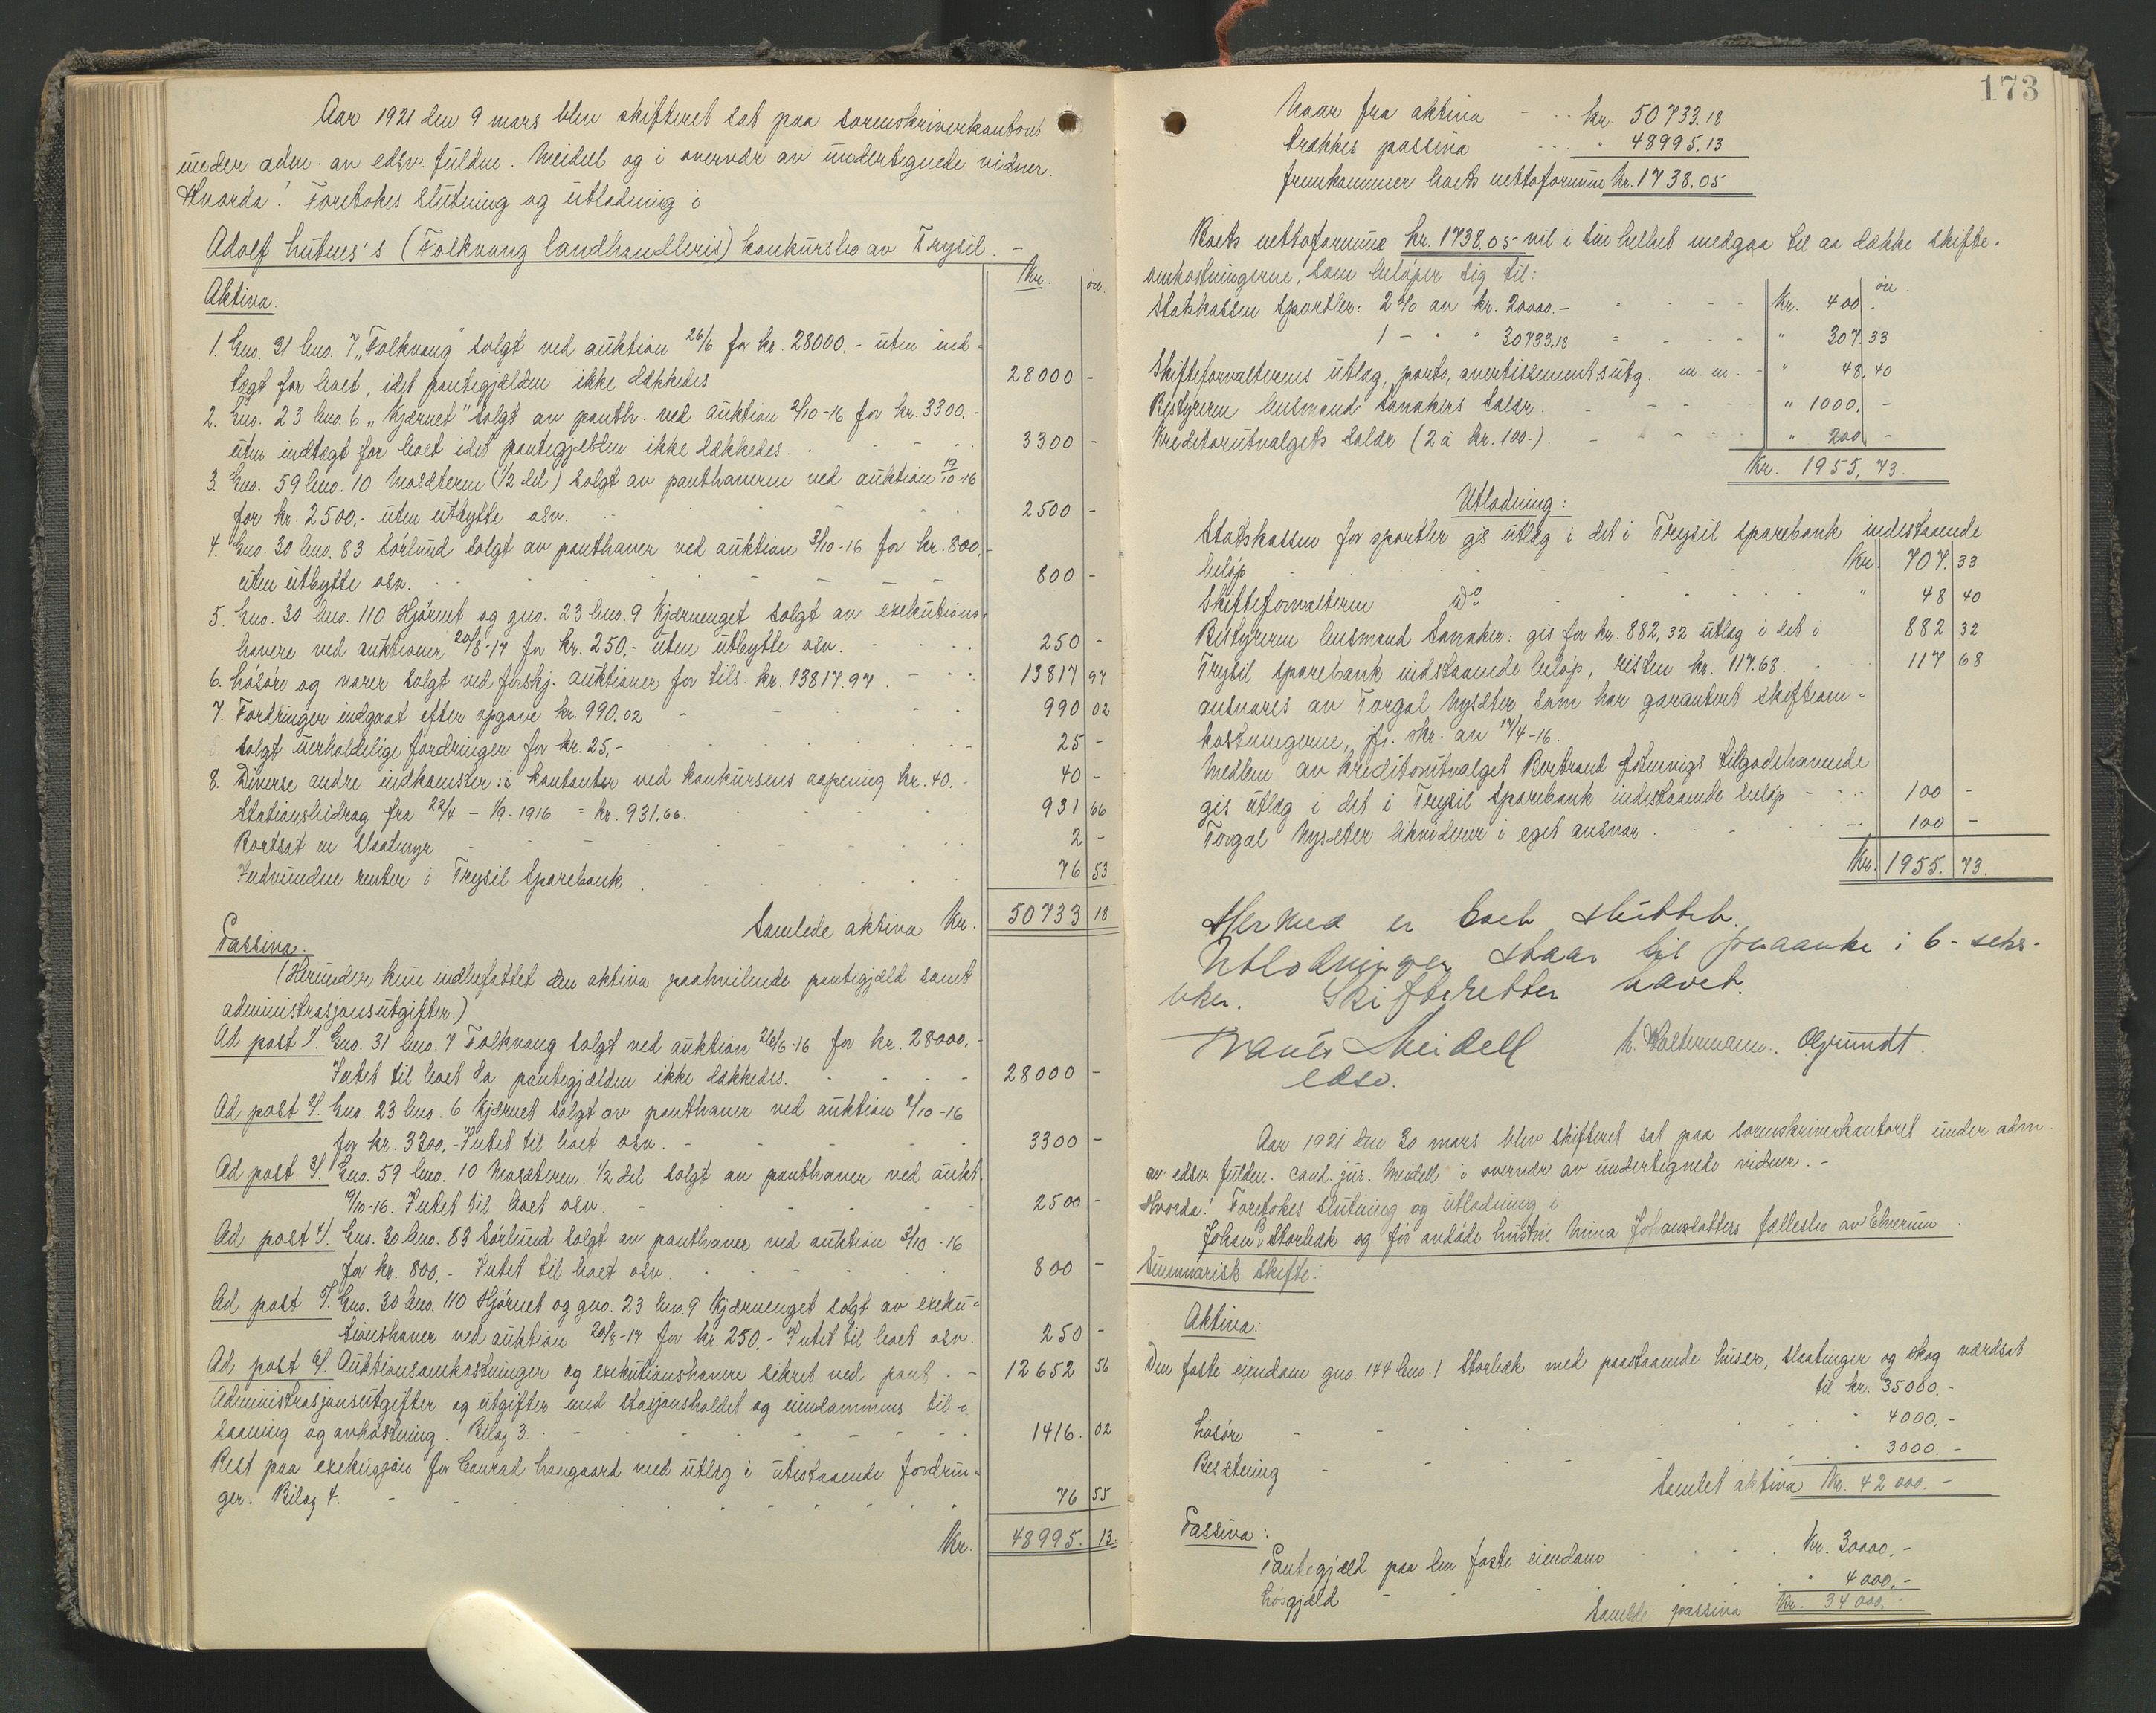 Aar 1921 den 9 mars blev skifteret sat paa sorenskriverkontoret
under adm. av edsv. fuldm. Meidell og i overvær av undertegnede vidner.
Hvorda! Foretokes slutning og utlodning i
Adolf Lutnes's (Folkvang landhandleris) konkursbo av Trysil. -
Kr. øre.
Aktiva:
1. Gno. 31 bno. 7 „Folkvang" solgt ved auktion 26/6 for kr. 28000.- uten ind-
tægt for boet, idet pantegjælden ikke dækkedes 28000 -
2. Gno. 23 bno. 6 „Kjærnet" solgt av panth. ved auktion 2/10-16 for kr. 3300.-
uten indtægt for boet idet pantegjælden ikke dækkedes. 3300 -
3. Gno. 59 bno. 10 Mosæteren (1/2 del) solgt av panthaveren ved auktion 19/10-16
for kr. 2500.- uten utbytte osv. 2500 -
4. Gno. 30 bno. 83 Sørlund solgt av panthaver ved auktion 3/10-16 for kr. 800.-
uten utbytte osv. 800 -
5. Gno. 30 bno. 110 Hjørnet og gno. 23 bno. 9 Kjærnenget solgt av exekutions-
havere ved auktioner 20/8-17 for kr. 250.- uten utbytte osv. 250 -
6. Løsøre og varer solgt ved forskj. auktioner for tils. kr. 13817.97. 13817 97
7. Fordringer indgaat efter opgave kr. 990.02 990 02
Solgt uerholdelige fordringer for kr. 25.- 25 -
8. Diverse andre indkomster: i kontanter ved konkursens aapning kr. 40.- 40 -
Stationsbidrag fra 22/4 - 1/9. 1916 = kr. 931.66. 931 66
Bortsat en slaatmyr 2 -
Indvundne renter i Trysil Sparebank 76 53
Samlede aktiva Kr. 50733 18
Passiva:
(Herunder kun indbefattet den aktiva paahvilende pantegjæld samt
administrasjonsutgifter.)
Ad post 1/. Gno. 31 bno. 7 Folkvang solgt ved auktion 26/6-16 for kr. 28000.-
Intet til boet da pantegjælden ikke dækkedes. 28000 -
Ad post 2/. Gno. 23 bno. 6 Kjærnet solgt av panthaver ved auktion 2/10-16
for kr. 3300.- Intet til boet osv. 3300 -
Ad post. 3/. Gno. 59 bno. 10 Mosæteren. 1/2 del solgt av panthaver ved aukt.
19/10-16. Intet til boet osv. 2500 -
Ad post 4/. Gno. 30 bno. 83 Sørlund solgt av panthaver ved auktion 3/10-16
for kr. 800.- Intet til boet osv. 800 -
Ad post 5/. Gno. 30 bno. 110 Hjørnet og gno. 23 bno. 9 Kjærnenget solgt av exeku-
tionshaver ved auktion 20/8-17 for kr. 250.- Intet til boet osv. 250 -
Ad post 6/. Auktionsomkostninger og exekutionshavere sikret ved pant. - 12652 56
Administrasjonsutgifter og utgifter med stasjonsholdet og eiendommens til-
saaning og avhøstning. Bilag 3. 1416. 02
Rest paa exekusjon for Conrad Langaard med utlæg i utestaaende fordrin-
ger. Bilag 4. 76 55
Kr. 48995. 13.
173
Naar fra aktiva kr. 50733.18
trækkes passiva " 48995.13
fremkommer boets nettoformue kr. 1738.05
Boets nettoformue kr. 1738,05 vil i sin helhet medgaa til aa dække skifte-
omkostningerne, som beløper sig til: øre.
Statskassen sportler: 2 % av kr. 20000.- Kr. 400 -
1 - " " 30733.18 " 307 33
Skifteforvalterens utlæg, porto, avertissementsutg. m. m. - " 48. 40
Bestyreren lensmand Sanakers salær. " 1000. -
Kreditorutvalgets salær (2 à kr. 100-). " 200. -
Kr. 1955, 73.
Utlodning:
Statskassen for sportler gis utlæg i det i Trysil sparebank indestaaende
beløp Kr. 707. 33
Skifteforvalteren do " 48 40
Bestyreren lensmand Sanaker: gis for kr. 882,32 utlæg i det i 882 32
Trysil sparebank indstaaende beløp, resten kr. 117.68. 117 68
ansvares av Torgal Nysæter som har garantert skifteom-
kostningerne, jfr. skr. av 17/4-16.
Medlem av kreditorutvalget Bertrand tilgodehavende
gis utlæg i det i Trysil Sparebank indestaaende beløp 100 -
Torgal Nysæter likviderer i eget ansvar. 100 -
Kr. 1955. 73.
Hermed er boet sluttet.
Utlodningen staar til paaanke i 6-seks-
uker. Skifteretten hævet.
Meidell
edsv.
Aar 1921 den 30 mars blev skifteret sat paa sorenskriverkontoret under adm.
av edsv. fuldm. cand. jur. Meidell i overvær av undertegnede vidner. -
Hvorda! Foretokes slutning og utlodning i
Johan B. Storbæk og før avdøde hustru Nina Johansdatters fællesbo av Elverum.
Summarisk skifte.
Aktiva:
Den faste eiendom gno. 144 bno. 1 Storbæk med paastaaende huser, slaatenger og skog værdsat
til kr. 35000.-
Løsøre " 4000.-
Besætning " 3000.-
Samlet aktiva Kr. 42000.-
Passiva:
Pantegjæld paa den faste eiendom Kr. 30000.-
Løsgjæld " 4000.-
Samlede passiva Kr. 34000.-